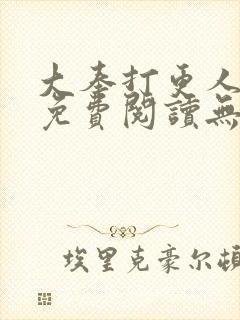 大奉打更人
免費閱讀無
埃里克豪尔頓